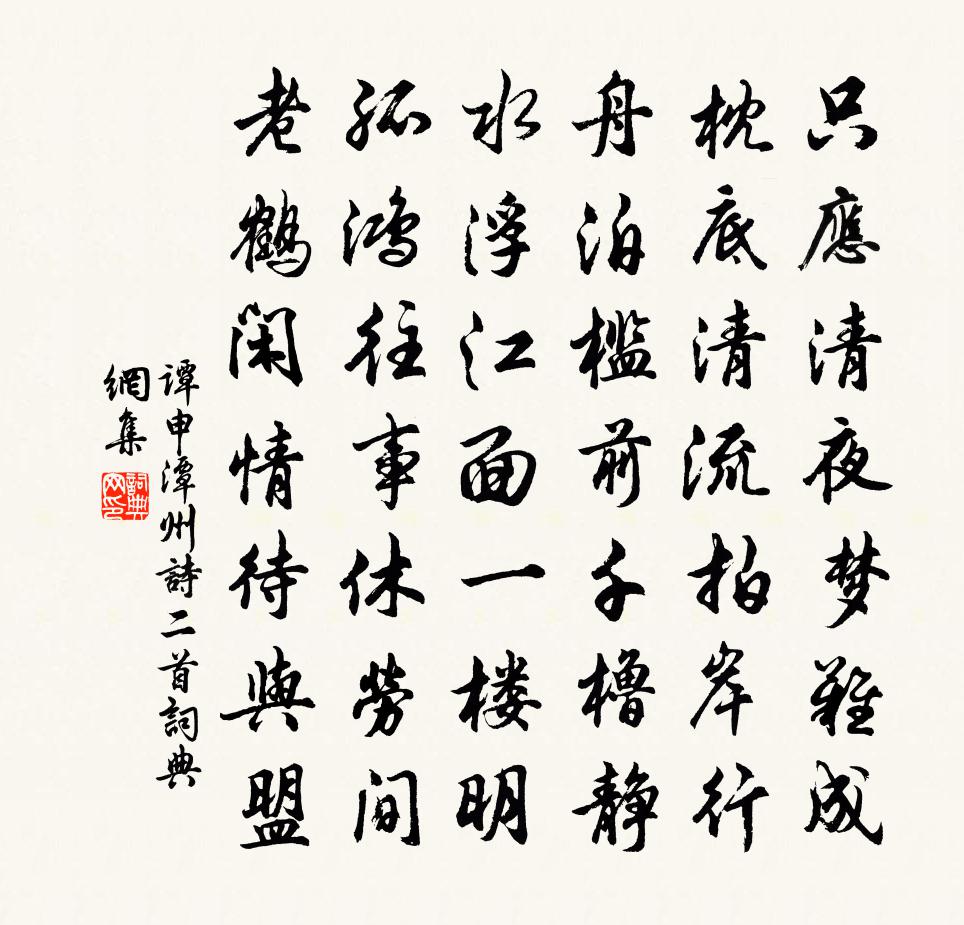 只應清夜梦難成
枕底清流拍岸行
舟泊檻前千櫓静
水浮江面一楼明
孤鴻往事休勞間
老鶴閑情待與盟
谭申潭州詩二首詞典
網集
詞典
网印